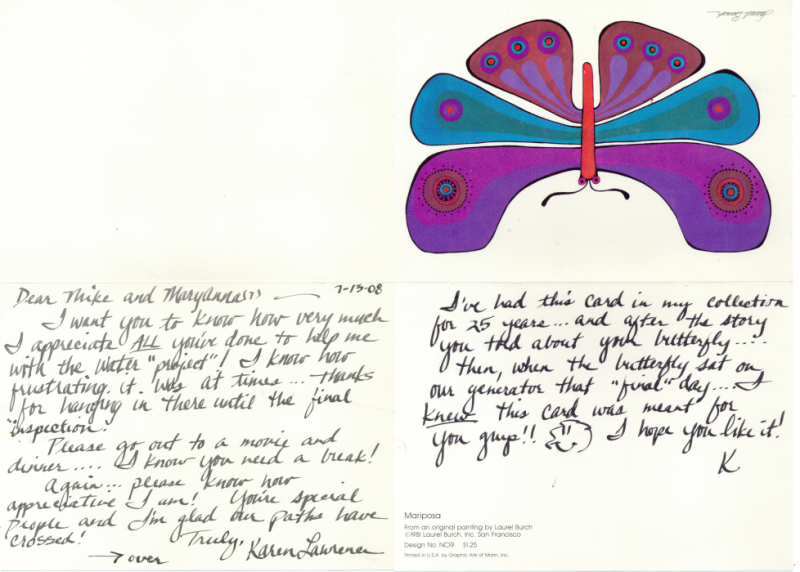 Laurel Burch
Dear Mike and Maryanna(?) 7-13-08
I want you to know how very much
I appreciate ALL you've done to help me
with the water "project"! I know how
frustrating it was at times... thanks
for hanging in there until the final
"inspection".
Please go out to a movie and
dinner.... I know you need a break!
Again... please know how
appreciative I am! You're special
people and I'm glad our paths have
crossed! Truly,
Karen Lawrence
→ over
I've had this card in my collection
for 25 years... and after the story
you told about your butterfly....
Then, when the butterfly sat on
our generator that "final" day... I
Knew this card was meant for
you guys!! I hope you like it!
K
Mariposa
From an original painting by Laurel Burch
©1981 Laurel Burch, Inc. San Francisco
Design No. NC19 $1.25
Printed in U.S.A. by Graphic Arts of Marin, Inc.